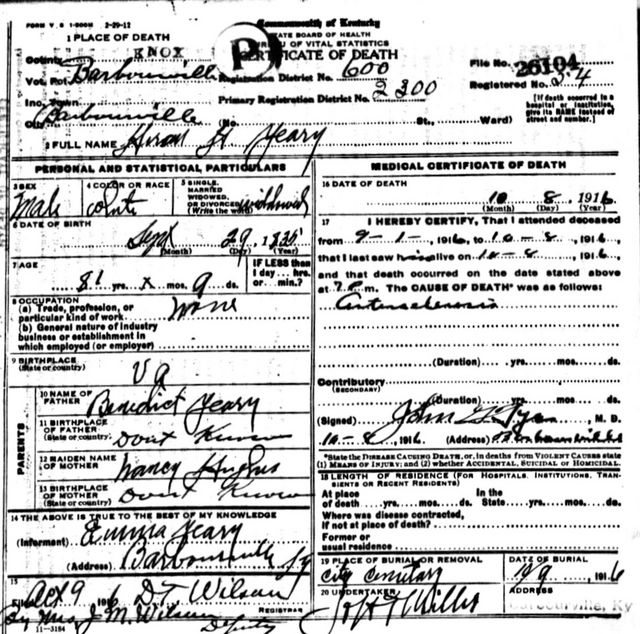 FORM V. S 1-500M 2-29-12
Commonwealth of Kentucky
STATE BOARD OF HEALTH
BUREAU OF VITAL STATISTICS
CERTIFICATE OF DEATH
1 PLACE OF DEATH
County KNOX
Vot. Pct. Barbourville
Registration District No. 600
File No. 26104
Inc. Town
Primary Registration District No. 2300
Registered No. 84
City Barbourville (No. St., Ward)
[If death occurred in a hospital or institution, give its NAME instead of street and number.]
2 FULL NAME Hiram H Yeary
PERSONAL AND STATISTICAL PARTICULARS
3 SEX Male
4 COLOR OR RACE white
5 SINGLE, MARRIED WIDOWED, OR DIVORCED (Write the word) widowed
6 DATE OF BIRTH
Sept 29, 1835
(Month) (Day) (Year)
7 AGE
81 yrs. x mos. 9 ds.
IF LESS than 1 day... hrs. or min.?
8 OCCUPATION
(a) Trade, profession, or particular kind of work None
(b) General nature of industry business or establishment in which employed (or employer)
9 BIRTHPLACE (State or country) Va
PARENTS
10 NAME OF FATHER Benedict Yeary
11 BIRTHPLACE OF FATHER (State or country) Dont Know
12 MAIDEN NAME OF MOTHER Nancy Hughes
13 BIRTHPLACE OF MOTHER (State or country) Dont Know
14 THE ABOVE IS TRUE TO THE BEST OF MY KNOWLEDGE
(Informant) Emma Yeary
(Address) Barbourville Ky
15
Filed Oct 9 1916 D T Wilson
REGISTRAR
By Mrs J M Wilson
Deputy
11-3184
MEDICAL CERTIFICATE OF DEATH
16 DATE OF DEATH
10 8, 1916
(Month) (Day) (Year)
17 I HEREBY CERTIFY, That I attended deceased
from 9-1-, 1916, to 10-8, 1916
that I last saw him alive on 10-8, 1916
and that death occurred on the date stated above
at P.m. The CAUSE OF DEATH* was as follows:
Arteriosclerosis
(Duration) yrs. mos. ds.
Contributory
(SECONDARY)
(Duration) yrs. mos. ds.
(Signed) John G Tye, M. D.
10-8, 1916 (Address) Barbourville
*State the DISEASE CAUSING DEATH, or, in deaths from VIOLENT CAUSES state (1) MEANS OF INJURY; and (2) whether ACCIDENTAL, SUICIDAL OR HOMICIDAL.
18 LENGTH OF RESIDENCE (FOR HOSPITALS, INSTITUTIONS, TRANSIENTS OR RECENT RESIDENTS)
At place of death yrs. mos. ds. In the State yrs. mos. ds.
Where was disease contracted, if not at place of death?
Former or usual residence
19 PLACE OF BURIAL OR REMOVAL
City Cemetary
DATE OF BURIAL
10 9, 1916
20 UNDERTAKER
ADDRESS
Barbourville, Ky